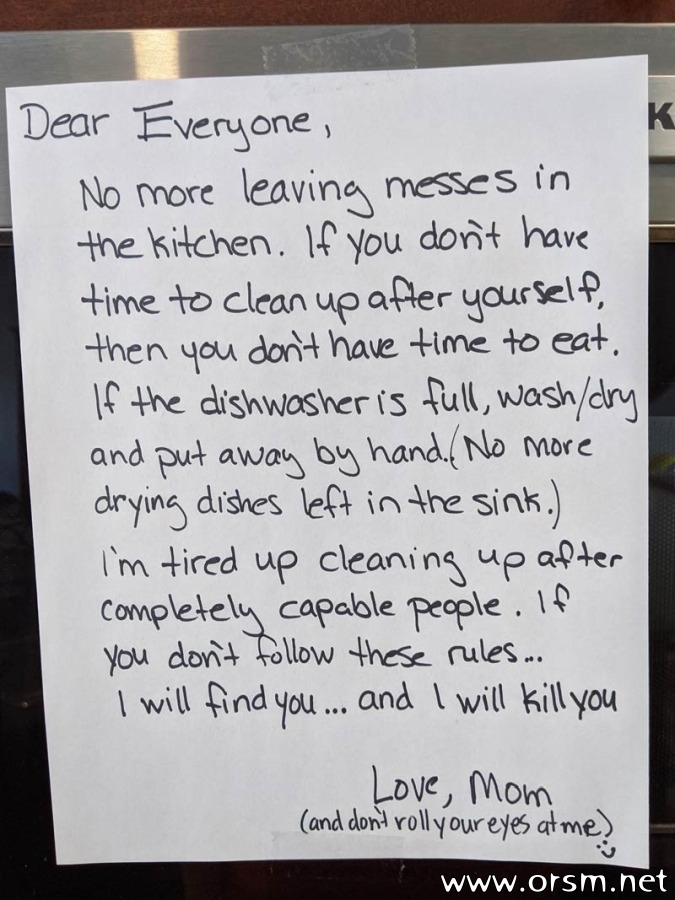 Dear Everyone,
No more leaving messes in
the kitchen. If you don't have
time to clean up after yourself,
then you don't have time to eat.
If the dishwasher is full, wash/dry
and put away by hand. (No more
drying dishes left in the sink.)
I'm tired up cleaning up after
completely capable people. If
you don't follow these rules...
I will find you... and I will kill you
Love, Mom
(and don't roll your eyes at me)
:)
K
www.orsm.net